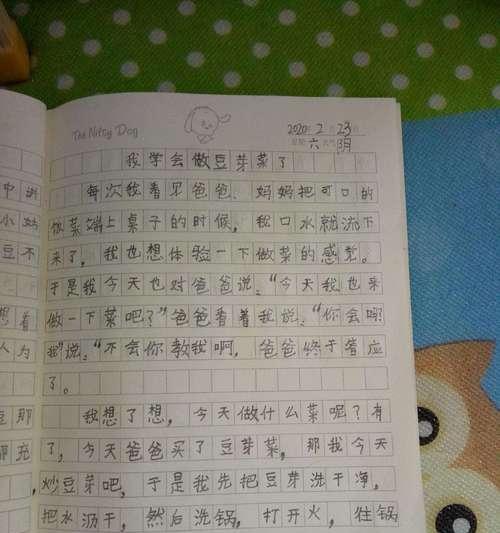 The Nitsy Dog
2020年2月23
星期六天气阴
我学会做豆芽菜了
每次我看见爸爸、妈妈把可口的
饭菜端上桌子的时候,我口水就流下
来了,我也想体验一下做菜的感觉。
于是我今天也对爸爸说:“今天我也来
做一下菜吧?”爸爸看着我说:“你会吗?
我”说:“不会你教我啊,爸爸终于答应
了。
我想了想,今天做什么菜呢?有
了,今天爸爸买了豆芽菜,那我今天
炒豆芽吧,于是我先把豆芽洗干净,
把水沥干,然后洗锅,打开火,往锅
小站
豆不
想着
人为
豆那